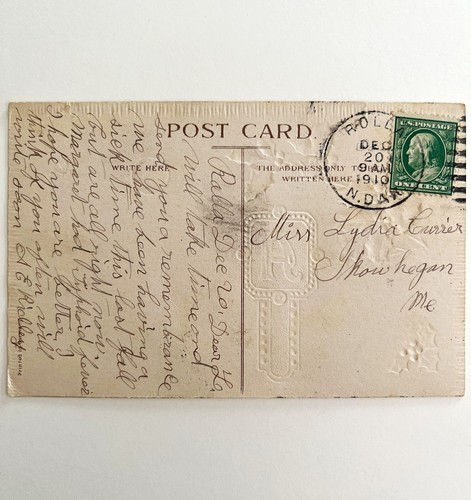 POST CARD.
WRITE HERE
THE ADDRESS ONLY TO BE
WRITTEN HERE
ROLLA
DEC
20
9 AM
1910
N. DAK.
U.S. POSTAGE
ONE CENT
Miss Lydia Currier
Skowhegan
Me
Rolla Dec 20, Dear
Will take time and
send you a remembrance
we have been having a
sick time this last fall
but are all right now,
Margaret had Typhoid fever
I hope you are better, I
think of you often, will
some